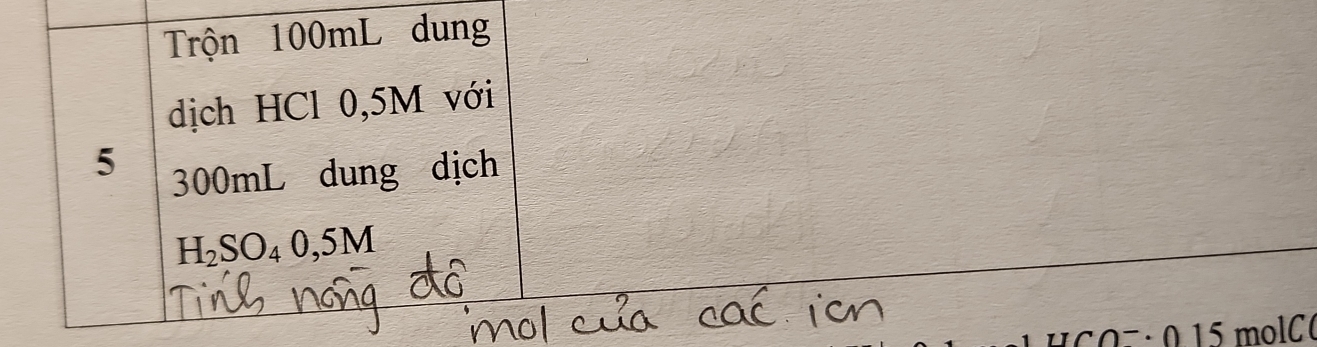 Trộn 100mL dung
dịch HCl 0,5M với
5
300mL dung dịch
H₂SO₄ 0,5M
Tính nồng độ
mol của các ion
0,15 molC